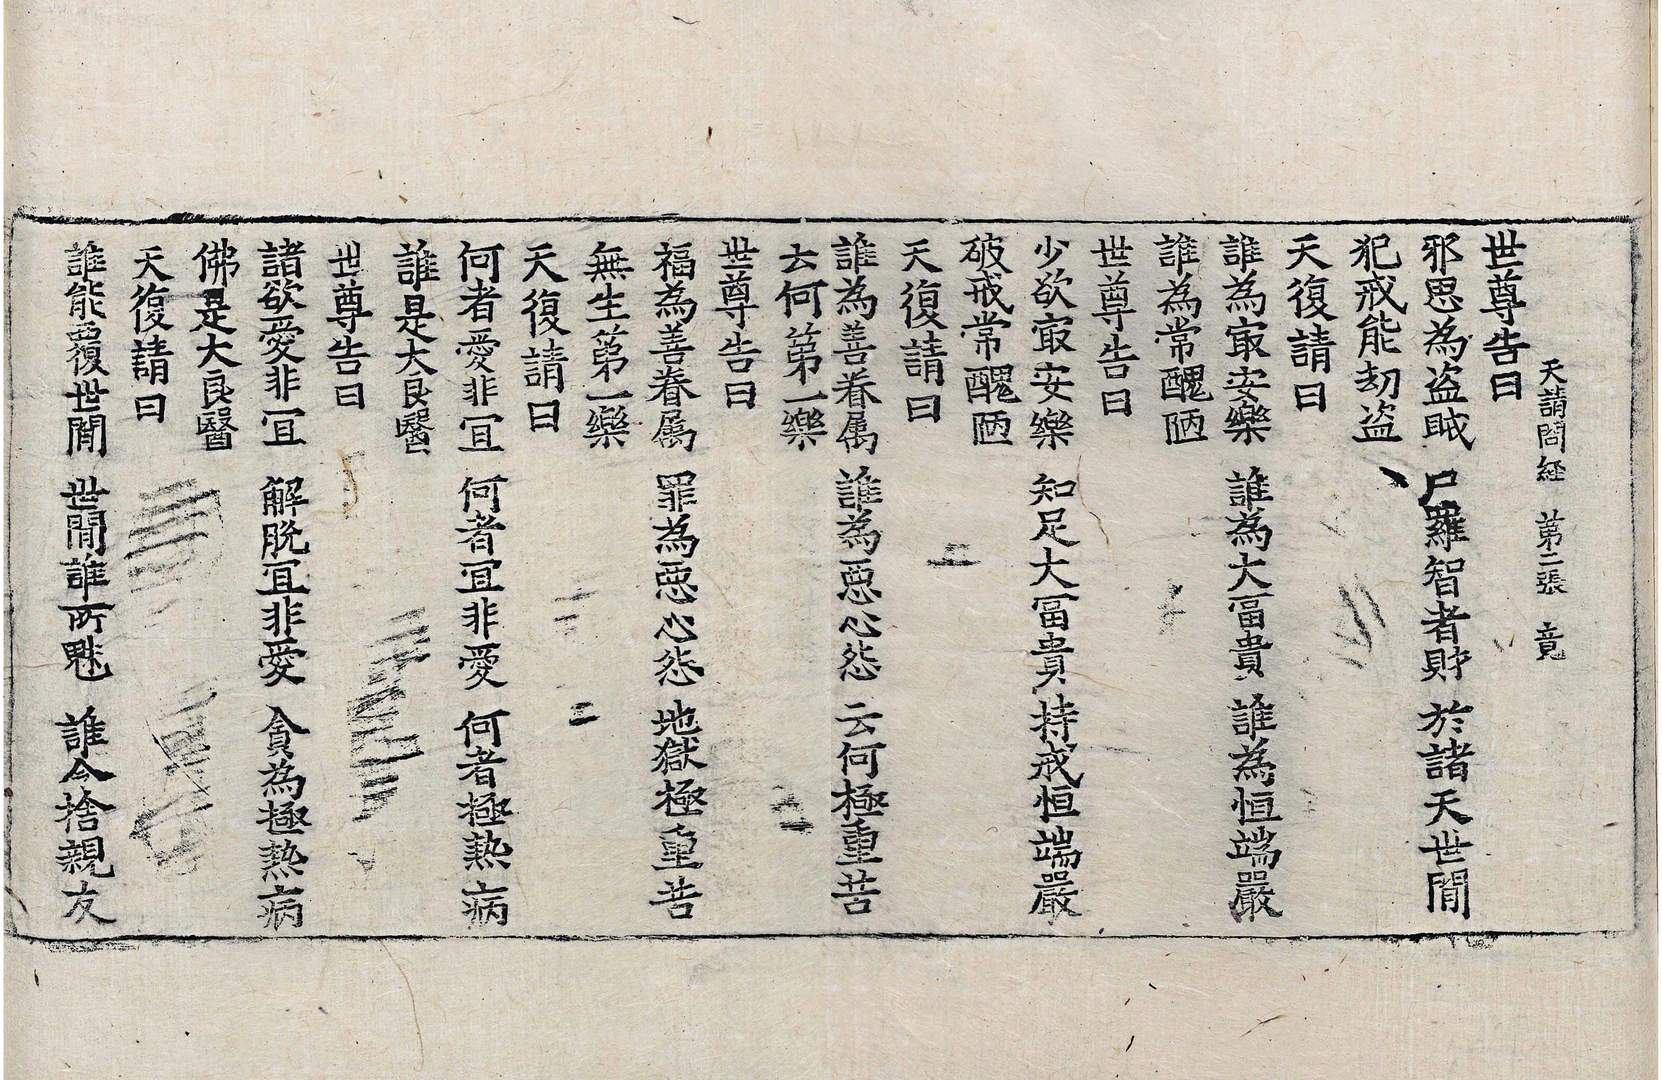 天請問経 第二張 竟
世尊告曰
邪思為盗賊 尸羅智者財 於諸天世間
犯戒能劫盗
天復請曰
誰為㝡安樂 誰為大冨貴 誰為恒端嚴
誰為常醜陋
世尊告曰
少欲㝡安樂 知足大冨貴 持戒恒端嚴
破戒常醜陋
天復請曰
誰為善眷属 誰為惡心怨 云何極重苦
云何第一樂
世尊告曰
福為善眷属 罪為惡心怨 地獄極重苦
無生第一樂
天復請曰
何者愛非冝 何者冝非愛 何者極熱病
誰是大良醫
世尊告曰
諸欲愛非冝 解脫冝非愛 貪為極熱病
佛是大良醫
天復請曰
誰能覆世間 世間誰所魅 誰令捨親友